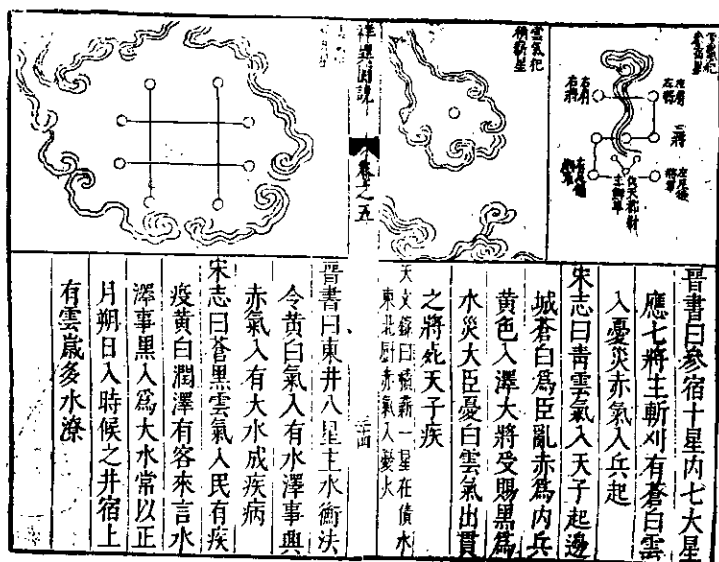 雲氣犯
參宿
左肩
左將
右肩
右將
三將
左足後
將軍
伐天都尉
主斬軍
雲氣犯
積薪星
晉書曰參宿十星內七大星
應七將主斬刈有蒼白雲
入憂災赤氣入兵起
宋志曰靑雲氣入天子起邊
城蒼白爲臣亂赤爲內兵
黃色入澤大將受賜黑爲
水災大臣憂白雲氣出貫
之將死天子疾
天文錄曰積薪一星在積水
東北廚赤氣入憂火
祥異圖說
卷之五
晉書曰東井八星主水衡法
令黃白氣入有水澤事興
赤氣入有大水成疾病
宋志曰蒼黑雲氣入民有疾
疫黃白潤澤有客來言水
澤事黑入爲大水常以正
月朔日入時候之井宿上
有雲歲多水潦